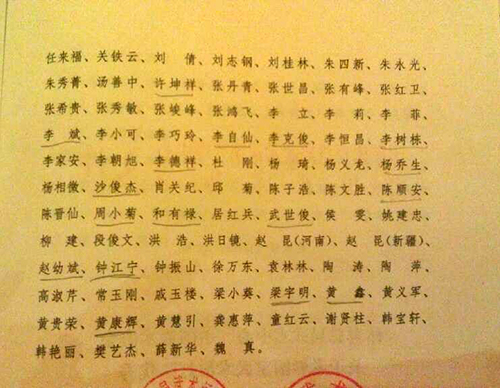 任来福、关铁云、刘　倩、刘志钢、刘桂林、朱四新、朱永光、
朱秀菁、汤善中、许坤祥、张丹青、张世昌、张有峰、张红卫、
张希贵、张秀敏、张峻峰、张鸿飞、李　立、李　莉、李　菲、
李　斌、李小可、李巧玲、李自仙、李克俊、李恒昌、李树栋、
李家安、李朝旭、李德祥、杜　刚、杨　琦、杨义龙、杨乔生、
杨相憿、沙俊杰、肖关纪、邱　菊、陈子浩、陈文胜、陈顺安、
陈晋仙、周小菊、和有禄、居红兵、武世俊、侯　雯、姚建忠、
柳　建、段俊文、洪　浩、洪日镜、赵　昆(河南)、赵　昆(新疆)、
赵幼斌、钟江宁、钟振山、徐万东、袁林林、陶　涛、陶　萍、
高淑芹、常玉刚、戚玉楼、梁小葵、梁宇明、黄　鑫、黄义军、
黄贵荣、黄康辉、黄慧引、龚惠萍、童红云、谢贤柱、韩宝轩、
韩艳丽、樊艺杰、薛新华、魏　真。